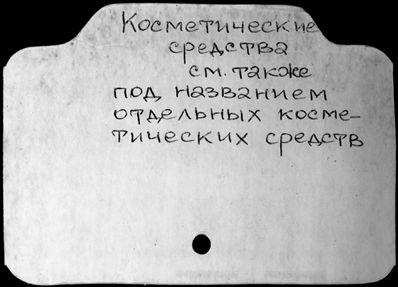 Косметические
средства
см. также
под названием
отдельных косме-
тических средств